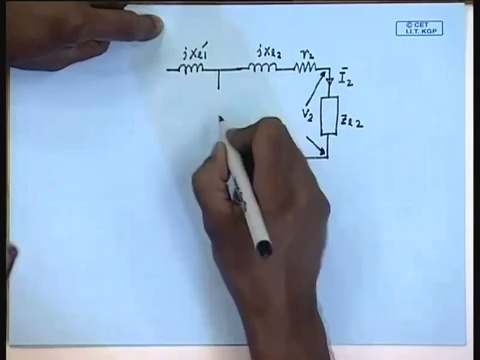 © CET
I.I.T. KGP
jxℓ1′ jxℓ2 r2
Ī2
V2
Zℓ2